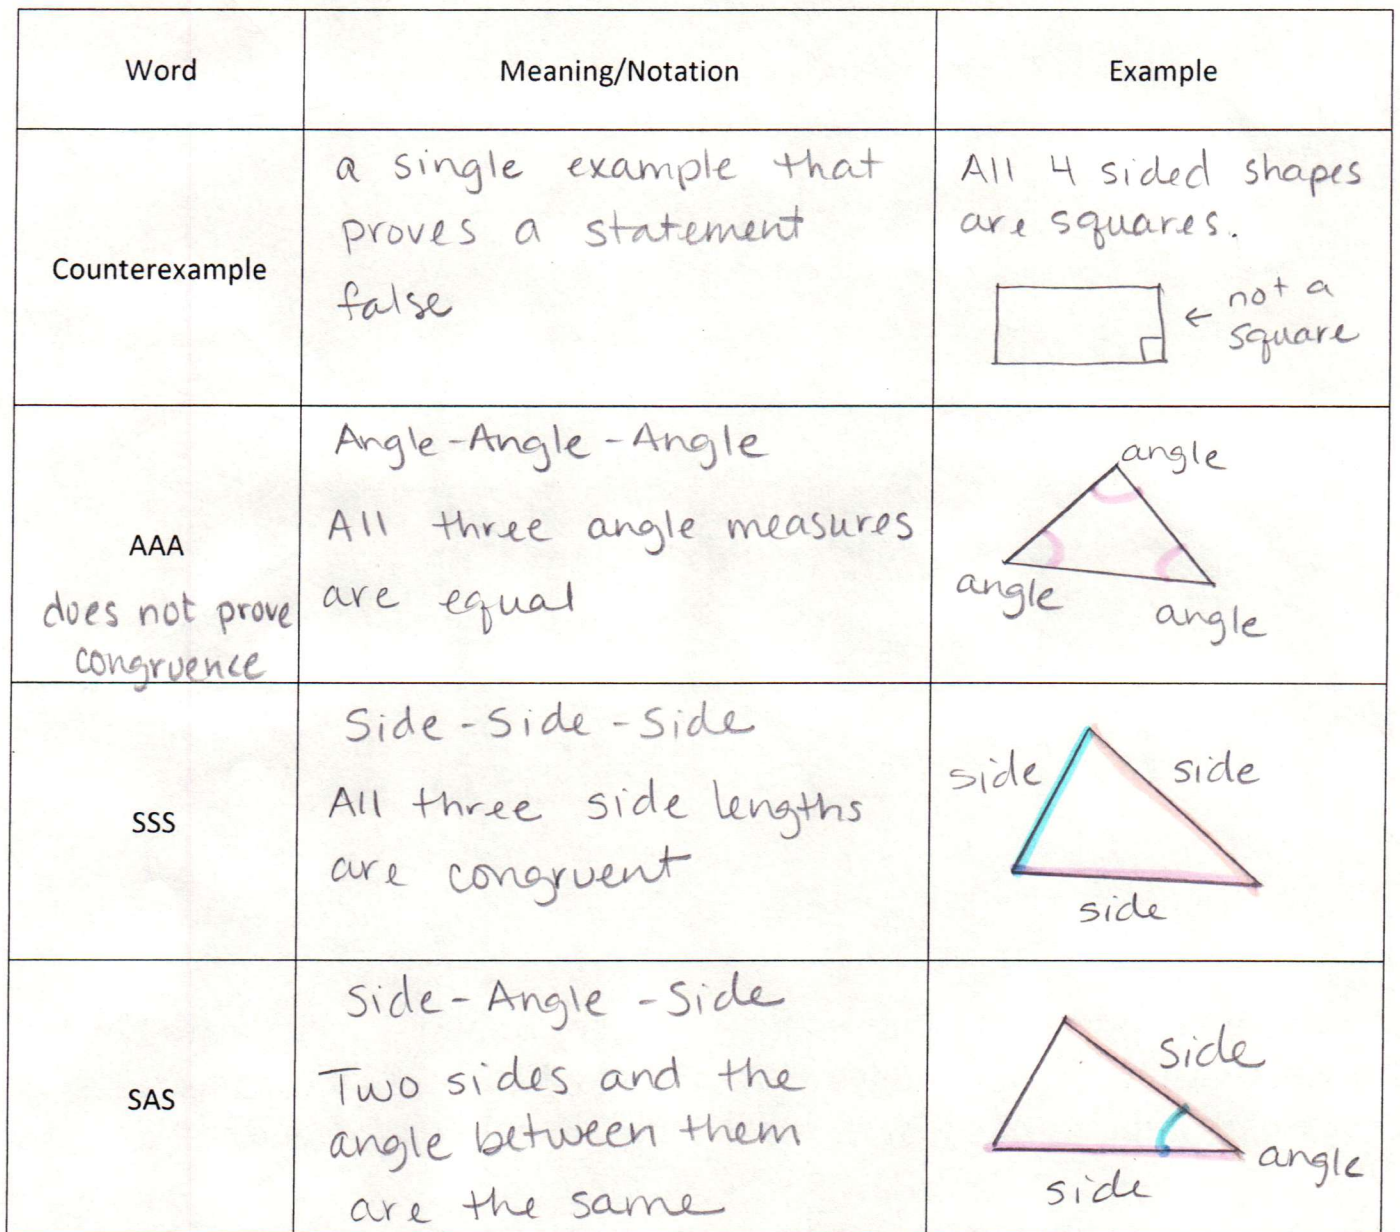 Word
Meaning/Notation
Example
Counterexample
a single example that
proves a statement
false
All 4 sided shapes
are squares.
← not a
square
AAA
does not prove
congruence
Angle-Angle-Angle
All three angle measures
are equal
angle
angle
angle
SSS
Side-Side-Side
All three side lengths
are congruent
side
side
side
SAS
Side-Angle-Side
Two sides and the
angle between them
are the same
side
angle
side